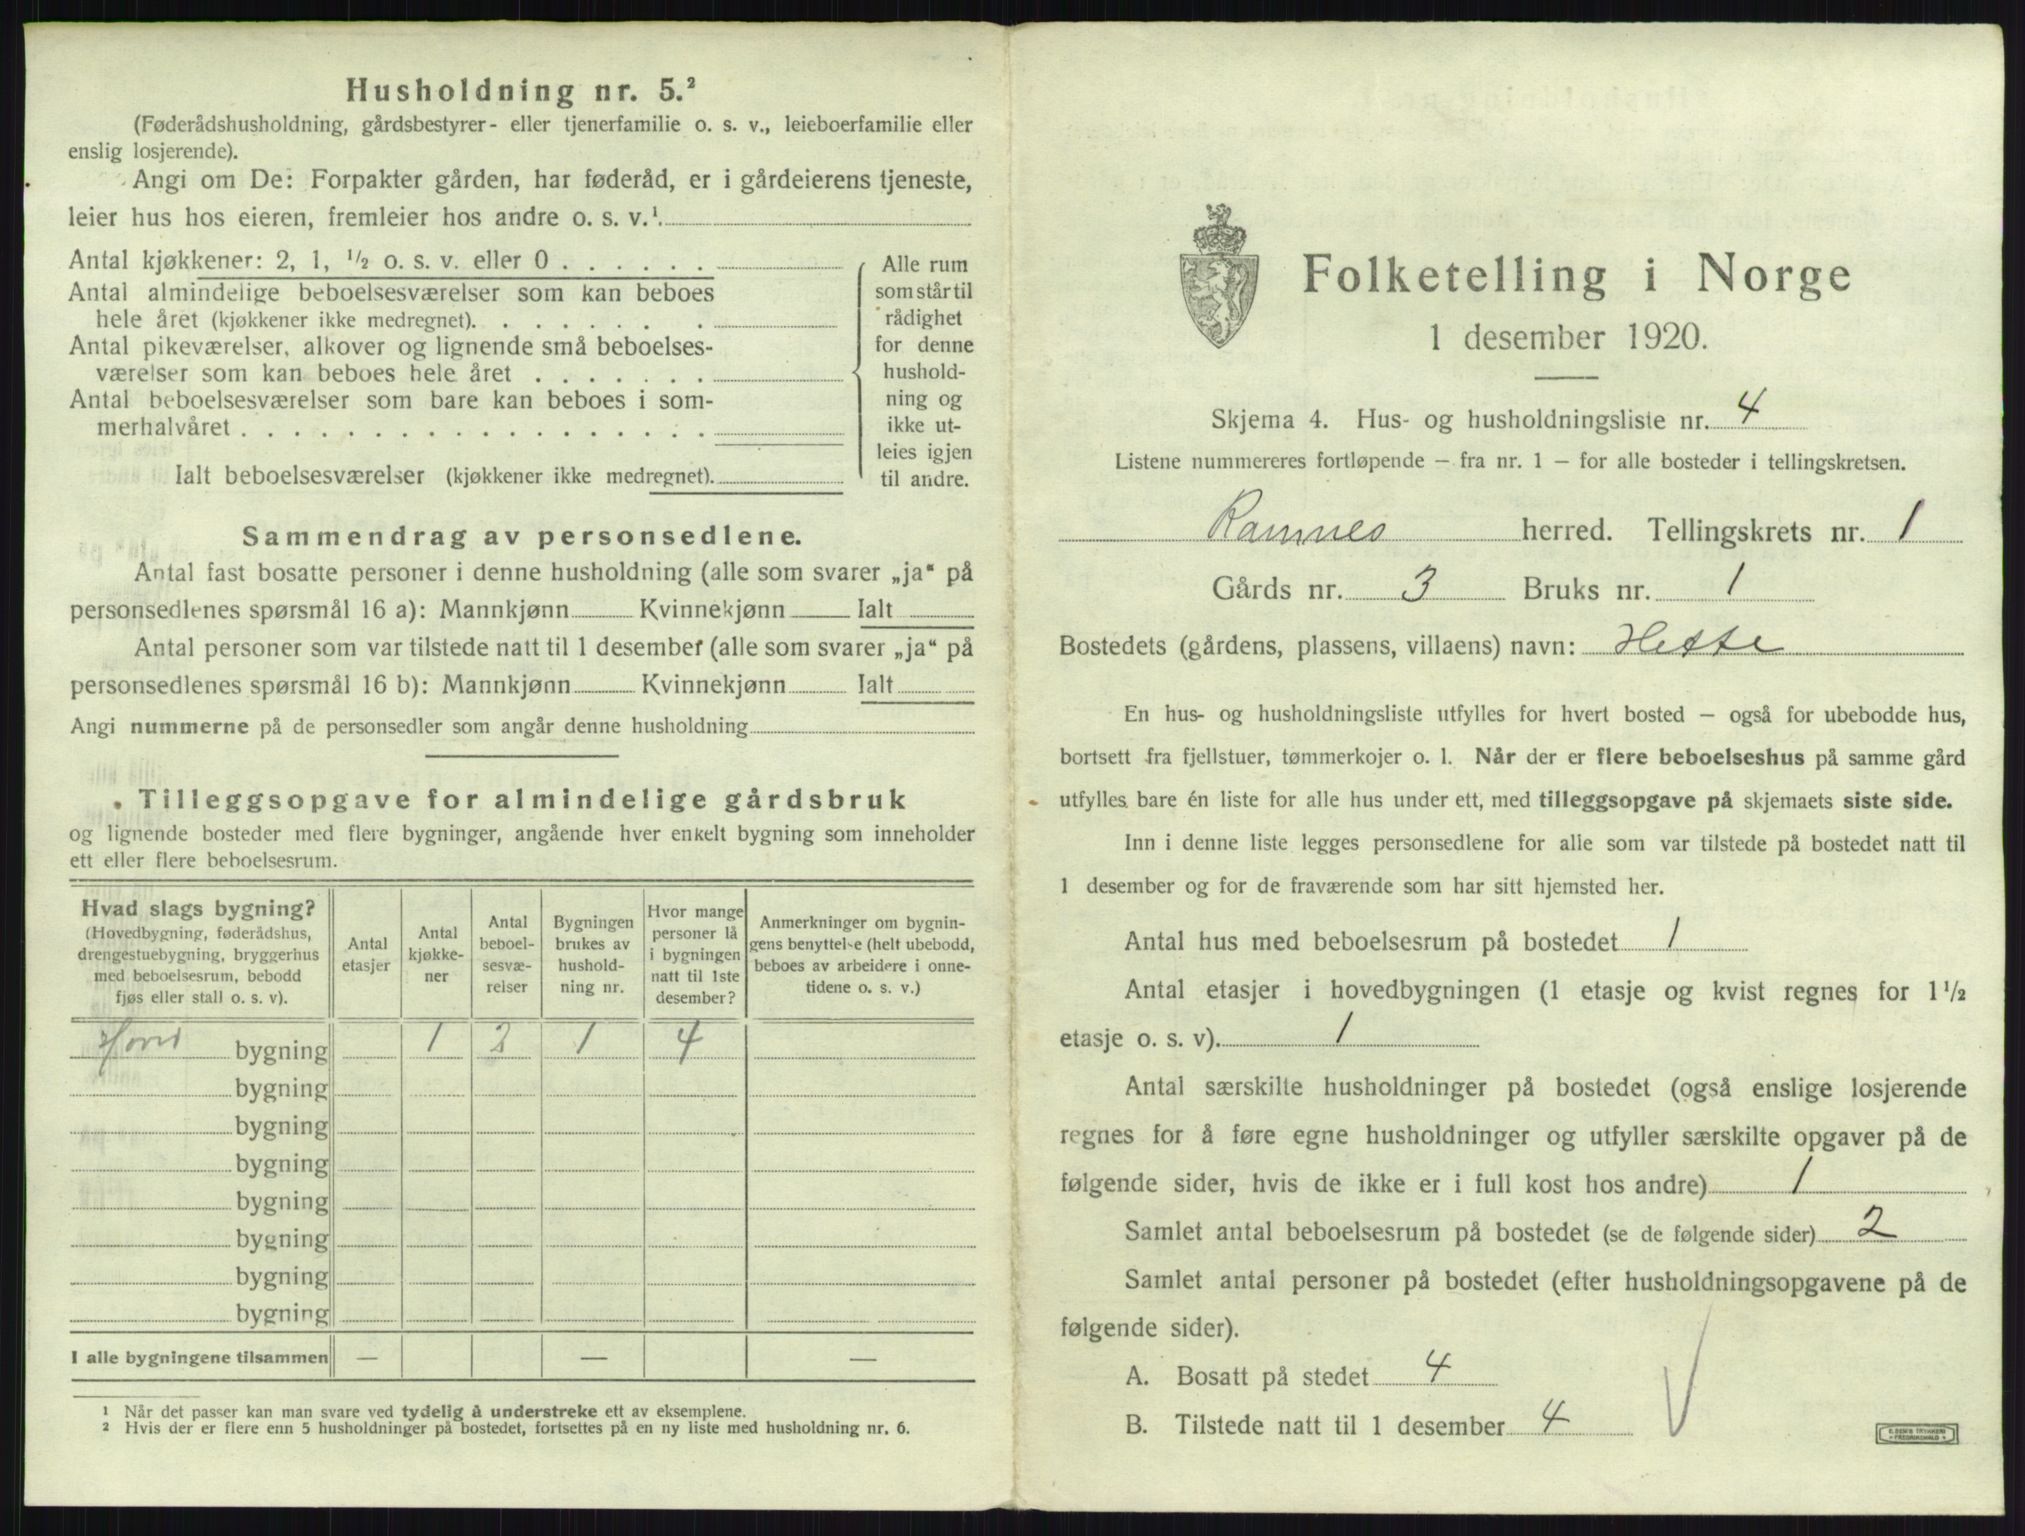 Husholdning nr. 5.²
(Føderådshusholdning, gårdsbestyrer- eller tjenerfamilie o. s. v., leieboerfamilie eller
enslig losjerende).
Angi om De: Forpakter gården, har føderåd, er i gårdeierens tjeneste,
leier hus hos eieren, fremleier hos andre o. s. v.¹.
Antal kjøkkener: 2, 1, ½ o. s. v. eller 0 . . . . . .
Antal almindelige beboelsesværelser som kan beboes
hele året (kjøkkener ikke medregnet). . . . . . . .
Antal pikeværelser, alkover og lignende små beboelses-
værelser som kan beboes hele året . . . . . . .
Antal beboelsesværelser som bare kan beboes i som-
merhalvåret . . . . . . . . . . . . . . . . . .
Ialt beboelsesværelser (kjøkkener ikke medregnet).
Alle rum
som står til
rådighet
for denne
hushold-
ning og
ikke ut-
leies igjen
til andre.
Sammendrag av personsedlene.
Antal fast bosatte personer i denne husholdning (alle som svarer „ja“ på
personsedlenes spørsmål 16 a): Mannkjønn Kvinnekjønn Ialt
Antal personer som var tilstede natt til 1 desember (alle som svarer „ja“ på
personsedlenes spørsmål 16 b): Mannkjønn Kvinnekjønn Ialt
Angi nummerne på de personsedler som angår denne husholdning
Tilleggsopgave for almindelige gårdsbruk
og lignende bosteder med flere bygninger, angående hver enkelt bygning som inneholder
ett eller flere beboelsesrum.
Hvad slags bygning?
(Hovedbygning, føderådshus,
drengestuebygning, bryggerhus
med beboelsesrum, bebodd
fjøs eller stall o. s. v).
Antal
etasjer
Antal
kjøkke-
ner
Antal
beboel-
sesvæ-
relser
Bygningen
brukes av
hushold-
ning nr.
Hvor mange
personer lå
i bygningen
natt til 1ste
desember?
Anmerkninger om bygnin-
gens benyttelse (helt ubebodd,
beboes av arbeidere i onne-
tidene o. s. v.)
Hoved bygning 1 2 1 4
bygning
bygning
bygning
bygning
bygning
bygning
bygning
I alle bygningene tilsammen — — —
1 Når det passer kan man svare ved tydelig å understreke ett av eksemplene.
2 Hvis der er flere enn 5 husholdninger på bostedet, fortsettes på en ny liste med husholdning nr. 6.
Folketelling i Norge
1 desember 1920.
Skjema 4. Hus- og husholdningsliste nr. 4
Listene nummereres fortløpende — fra nr. 1 — for alle bosteder i tellingskretsen.
Ramnes herred. Tellingskrets nr. 1
Gårds nr. 3 Bruks nr. 1
Bostedets (gårdens, plassens, villaens) navn: Hette
En hus- og husholdningsliste utfylles for hvert bosted — også for ubebodde hus,
bortsett fra fjellstuer, tømmerkojer o. l. Når der er flere beboelseshus på samme gård
utfylles bare én liste for alle hus under ett, med tilleggsopgave på skjemaets siste side.
Inn i denne liste legges personsedlene for alle som var tilstede på bostedet natt til
1 desember og for de fraværende som har sitt hjemsted her.
Antal hus med beboelsesrum på bostedet 1
Antal etasjer i hovedbygningen (1 etasje og kvist regnes for 1½
etasje o. s. v). 1
Antal særskilte husholdninger på bostedet (også enslige losjerende
regnes for å føre egne husholdninger og utfyller særskilte opgaver på de
følgende sider, hvis de ikke er i full kost hos andre) 1
Samlet antal beboelsesrum på bostedet (se de følgende sider) 2
Samlet antal personer på bostedet (efter husholdningsopgavene på de
følgende sider).
A. Bosatt på stedet 4
B. Tilstede natt til 1 desember 4